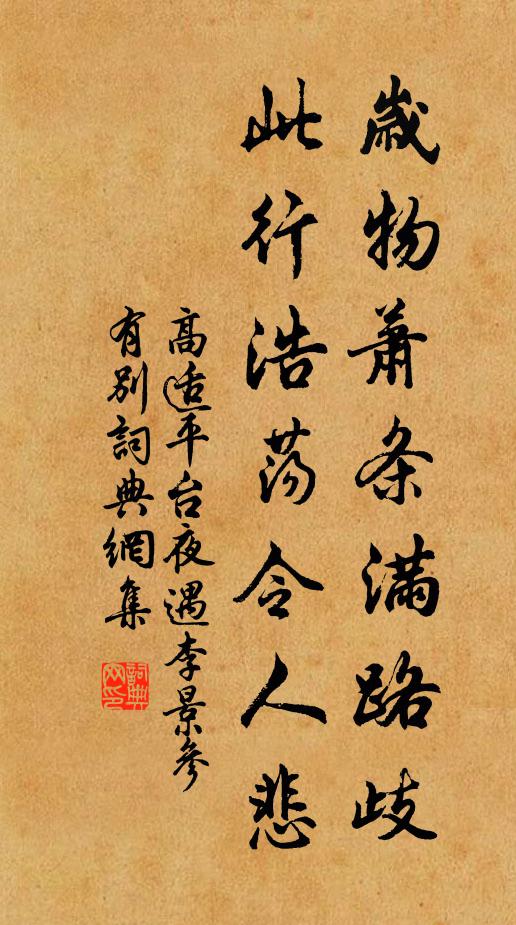 歲物蕭条滿路歧
此行浩蕩令人悲
高适平台夜遇李景參
有別詞典網集
詞典网印